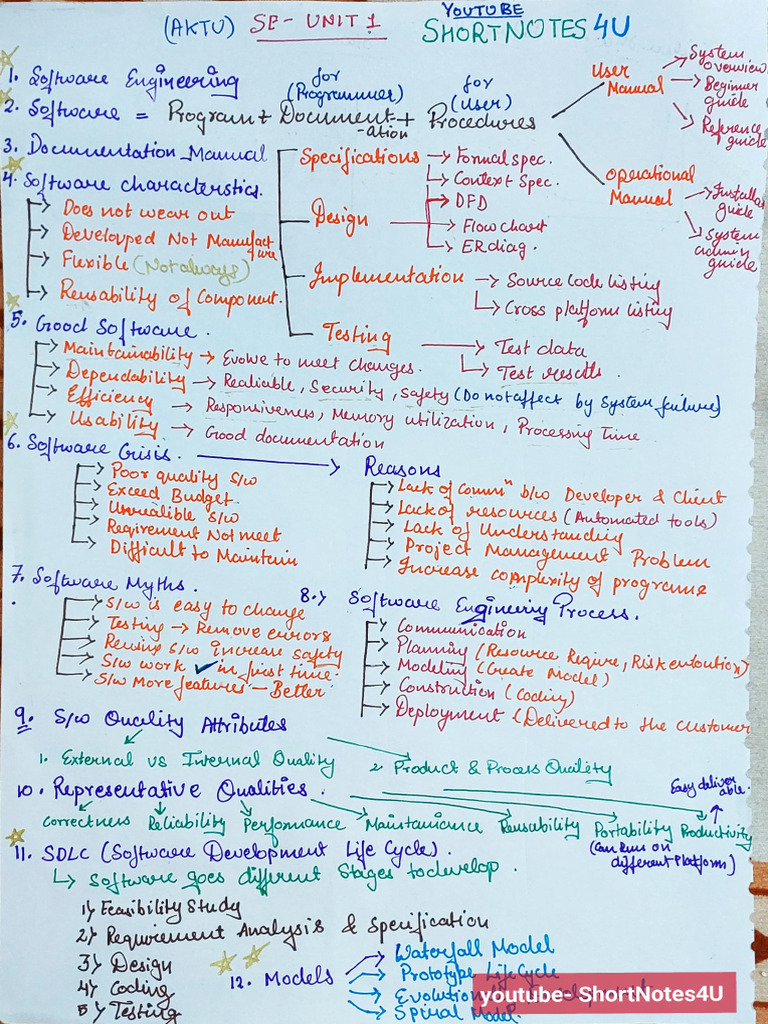 YOUTUBE
(AKTU) SE- UNIT 1 SHORTNOTES 4U
1. Software Engineering
2. Software = Program + Document-ation + Procedures
for (Programmer)
for (User)
User Manual
System overview
Beginner guide
Reference guide
Operational Manual
Installat guide
System admin guide
3. Documentation Manual
Specifications → Formal spec.
Context Spec.
Design
DFD
Flow chart
ER diag.
Implementation → Source code listing
Cross platform listing
Testing → Test data
Test results.
4. Software characterstics.
Does not wear out
Developed Not Manufacture
Flexible (Not always)
Reusability of Component.
5. Good Software.
Maintainability → Evolve to meet changes.
Dependability → Realiable, Security, Safety (Do not affect by System failure)
Efficiency → Responsiveness, Memory utilization, Processing Time
Usability → Good documentation
6. Software Crisis. → Reasons
Poor quality S/W
Exceed Budget.
Unrealible S/W
Reqirement Not meet
Difficult to Maintain
Lack of Commⁿ b/w Developer & Client
Lack of resources (Automated tools)
Lack of Understanding
Project Management Problem
Increase complexity of programme
7. Software Myths.
S/W is easy to change
Testing → Remove errors
Reusing S/W increase safety
S/W work ✓ in first time.
S/W More features - Better
8.) Software Engineering Process.
Communication
Planning (Resource Reqire, Risk
Modeling (Create Model)
Construction (Coding)
Deployment (Delivered to the Customer
9. S/W Quality Attributes
1. External vs Internal Quality
2. Product & Process Quality
10. Representative Qualities.
Easy deliver able.
Correctness Reliability Performance Maintainence Reusability Portability Productivity
(Can Run on different Platform)
11. SDLC (Software Development Life Cycle).
↳ Software goes different Stages to develop.
1) Feasibility Study
2) Requirement Analysis & Specification
3) Design
4) Coding
5) Testing
12. Models
Waterfall Model
Prototype Life Cycle
Spiral Model.
youtube- ShortNotes4U